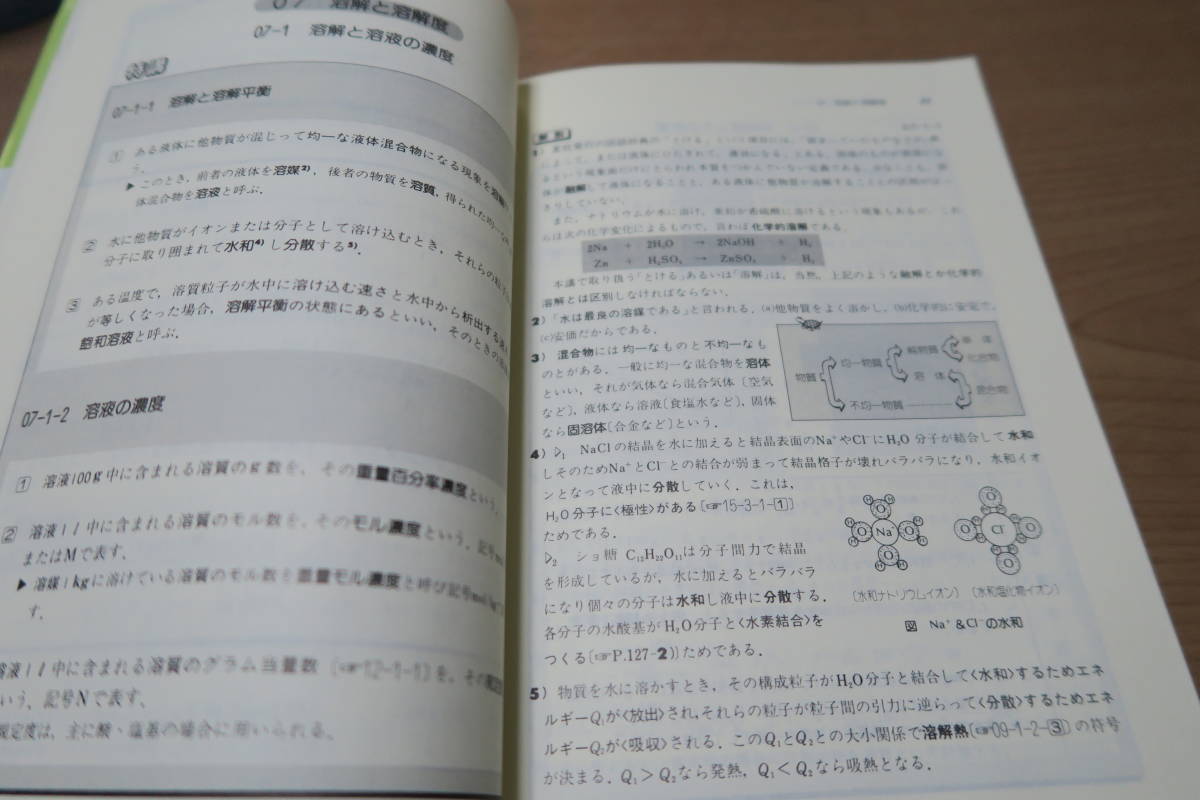 07 溶解と溶解度
07-1 溶解と溶液の濃度
特講
07-1-1 溶解と溶解平衡
① ある液体に他物質が混じって均一な液体混合物になる現象を溶解
う.
▶このとき, 前者の液体を溶媒²⁾, 後者の物質を溶質, 得られた均一な
体混合物を溶液と呼ぶ.
② 水に他物質がイオンまたは分子として溶け込むとき, それらの粒子
分子に取り囲まれて水和⁴⁾し分散する⁵⁾.
③ ある温度で, 溶質粒子が水中に溶け込む速さと水中から析出する速
が等しくなった場合, 溶解平衡の状態にあるといい, そのときの溶液
飽和溶液と呼ぶ.
07-1-2 溶液の濃度
1 溶液100g中に含まれる溶質のg数を, その重量百分率濃度という.
2 溶液1l中に含まれる溶質のモル数を, そのモル濃度という. 記号
またはMで表す.
▶溶媒1kgに溶けている溶質のモル数を重量モル濃度と呼び記号
す.
溶液1l中に含まれる溶質のグラム当量数 (☞12-1-1)を, その規定
いう. 記号Nで表す.
規定度は, 主に酸・塩基の場合に用いられる.
体が融解して液体になることと, ある液体に他物質が溶解することとの区別が
きりしていない.
また, ナトリウムが水に溶け, 亜鉛が希硫酸に溶けるという現象もあるが, これ
らは次の化学変化によるもので, 言わば化学的溶解である.
2Na + 2H₂O → 2NaOH + H₂
Zn + H₂SO₄ → ZnSO₄ + H₂
本講で取り扱う「とける」あるいは「溶解」は, 当然, 上記のような融解とか化学的
溶解とは区別しなければならない.
2) 「水は最良の溶媒である」と言われる. (a)他物質をよく溶かし, (b)化学的に安定で,
(c)安価だからである.
3) 混合物には均一なものと不均一なも
のとがある. 一般に均一な混合物を溶体
といい, それが気体なら混合気体〔空気
など〕, 液体なら溶液〔食塩水など〕, 固体
なら固溶体〔合金など〕という.
物質
均一物質
不均一物質
純物質
溶 体
単 体
化合物
混合物
4) ▷₁ NaClの結晶を水に加えると結晶表面のNa⁺やCl⁻にH₂O分子が結合して水和
しそのためNa⁺とCl⁻との結合が弱まって結晶格子が壊れバラバラになり, 水和イオ
ンとなって液中に分散していく. これは,
H₂O分子に〈極性〉がある〔☞15-3-1-1〕
ためである.
▷₂ ショ糖 C₁₂H₂₂O₁₁は分子間力で結晶
を形成しているが, 水に加えるとバラバラ
になり個々の分子は水和し液中に分散する.
各分子の水酸基がH₂O分子と〈水素結合〉を
つくる〔☞P.127-2)〕ためである.
Na⁺
Cl⁻
(水和ナトリウムイオン) (水和塩化物イオン)
図 Na⁺&Cl⁻の水和
5) 物質を水に溶かすとき, その構成粒子がH₂O分子と結合して〈水和〉するためエネ
ルギーQ₁が〈放出〉され, それらの粒子が粒子間の引力に逆らって〈分散〉するためエネ
ルギーQ₂が〈吸収〉される. このQ₁とQ₂との大小関係で溶解熱(☞09-1-2-③)の符号
が決まる. Q₁>Q₂なら発熱, Q₁<Q₂なら吸熱となる.